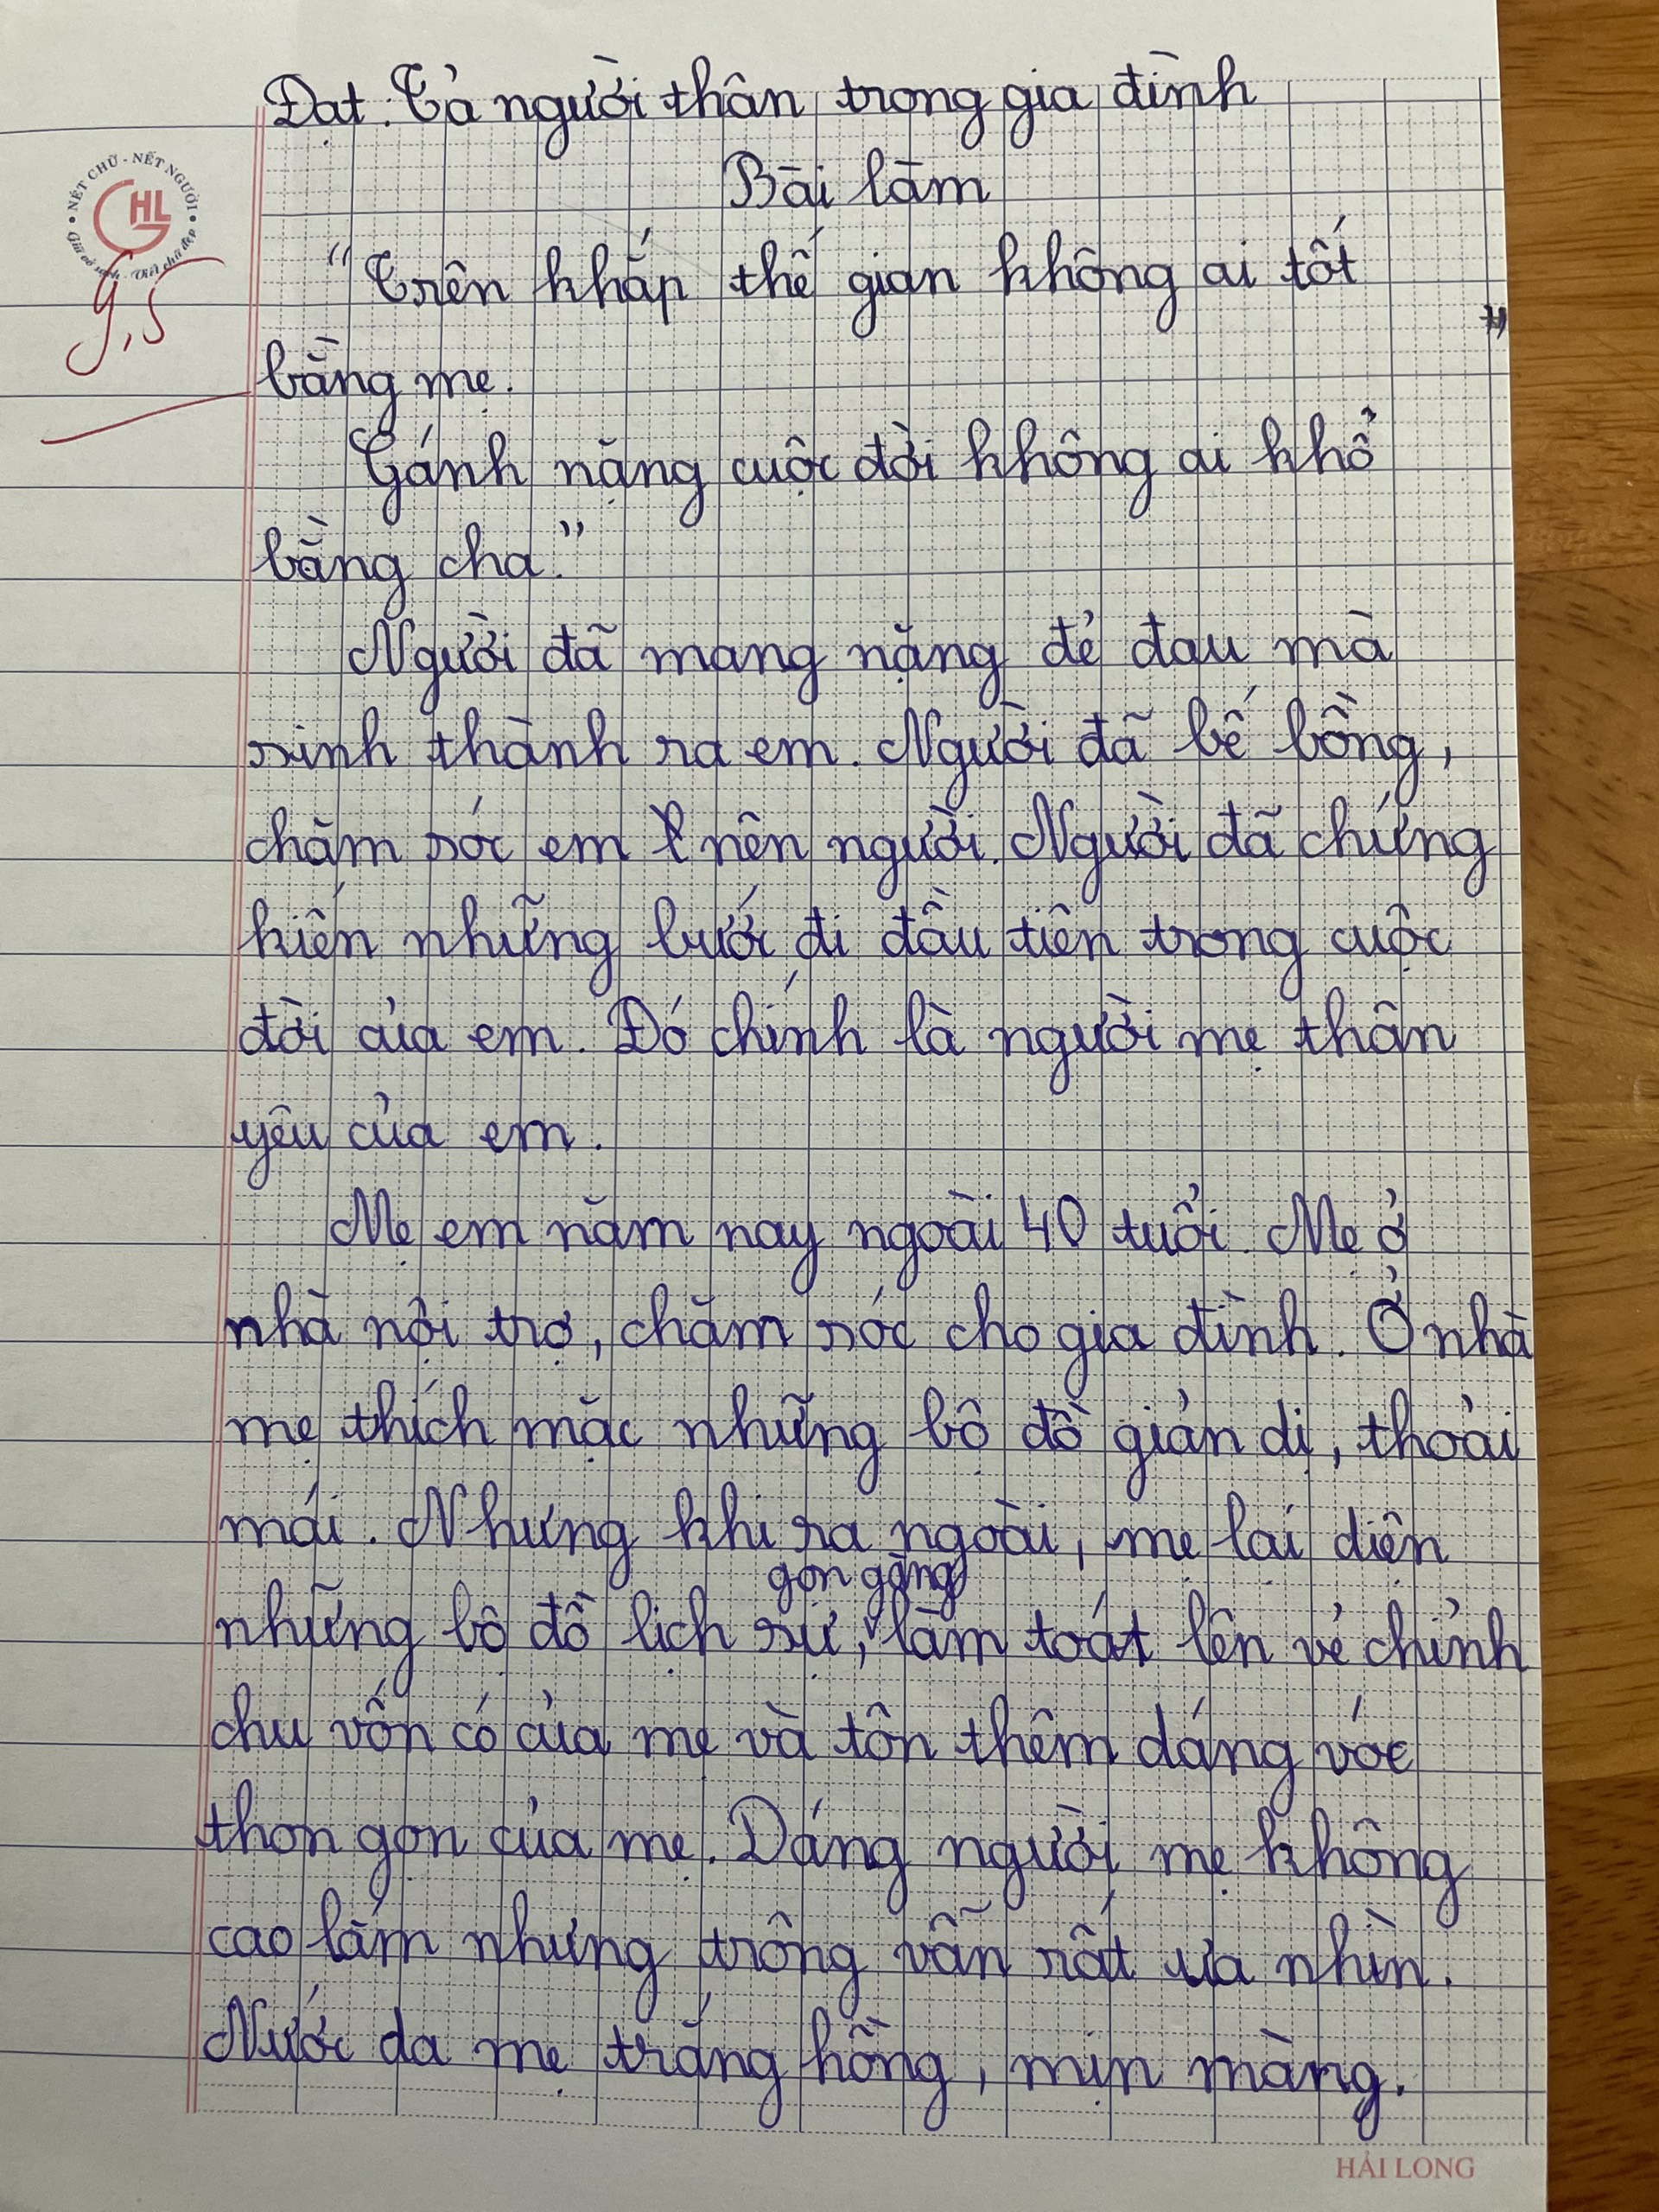 Đạt: Tả người thân trong gia đình
Bài làm
NÉT CHỮ - NẾT NGƯỜI
HL
Giữ vở sạch - Viết chữ đẹp
9,5
"Trên khắp thế gian không ai tốt
bằng mẹ.
Gánh nặng cuộc đời không ai khổ
bằng cha."
Người đã mang nặng đẻ đau mà
sinh thành ra em. Người đã bế bồng,
chăm sóc em nên người. Người đã chứng
kiến những bước đi đầu tiên trong cuộc
đời của em. Đó chính là người mẹ thân
yêu của em.
Mẹ em năm nay ngoài 40 tuổi. Mẹ ở
nhà nội trợ, chăm sóc cho gia đình. Ở nhà
mẹ thích mặc những bộ đồ giản dị, thoải
mái. Nhưng khi ra ngoài, mẹ lại diện
gọn gàng
những bộ đồ lịch sự, làm toát lên vẻ chỉnh
chu vốn có của mẹ và tôn thêm dáng vóc
thon gọn của mẹ. Dáng người mẹ không
cao lắm nhưng trông vẫn rất ưa nhìn.
Nước da mẹ trắng hồng, mịn màng.
HẢI LONG